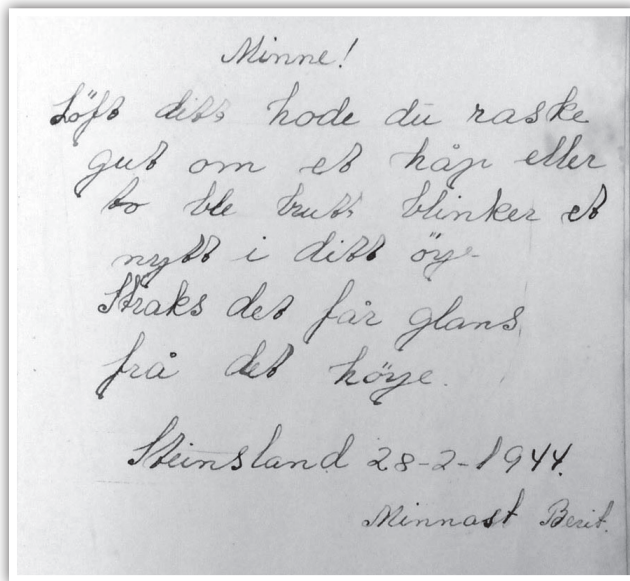 Minne!
Löft ditt hode du raske
gut om et håp eller
to ble brutt blinker et
nytt i ditt öye
Straks det får glans
frå det höye.
Steinsland 28-2-1944.
Minnast Berit.